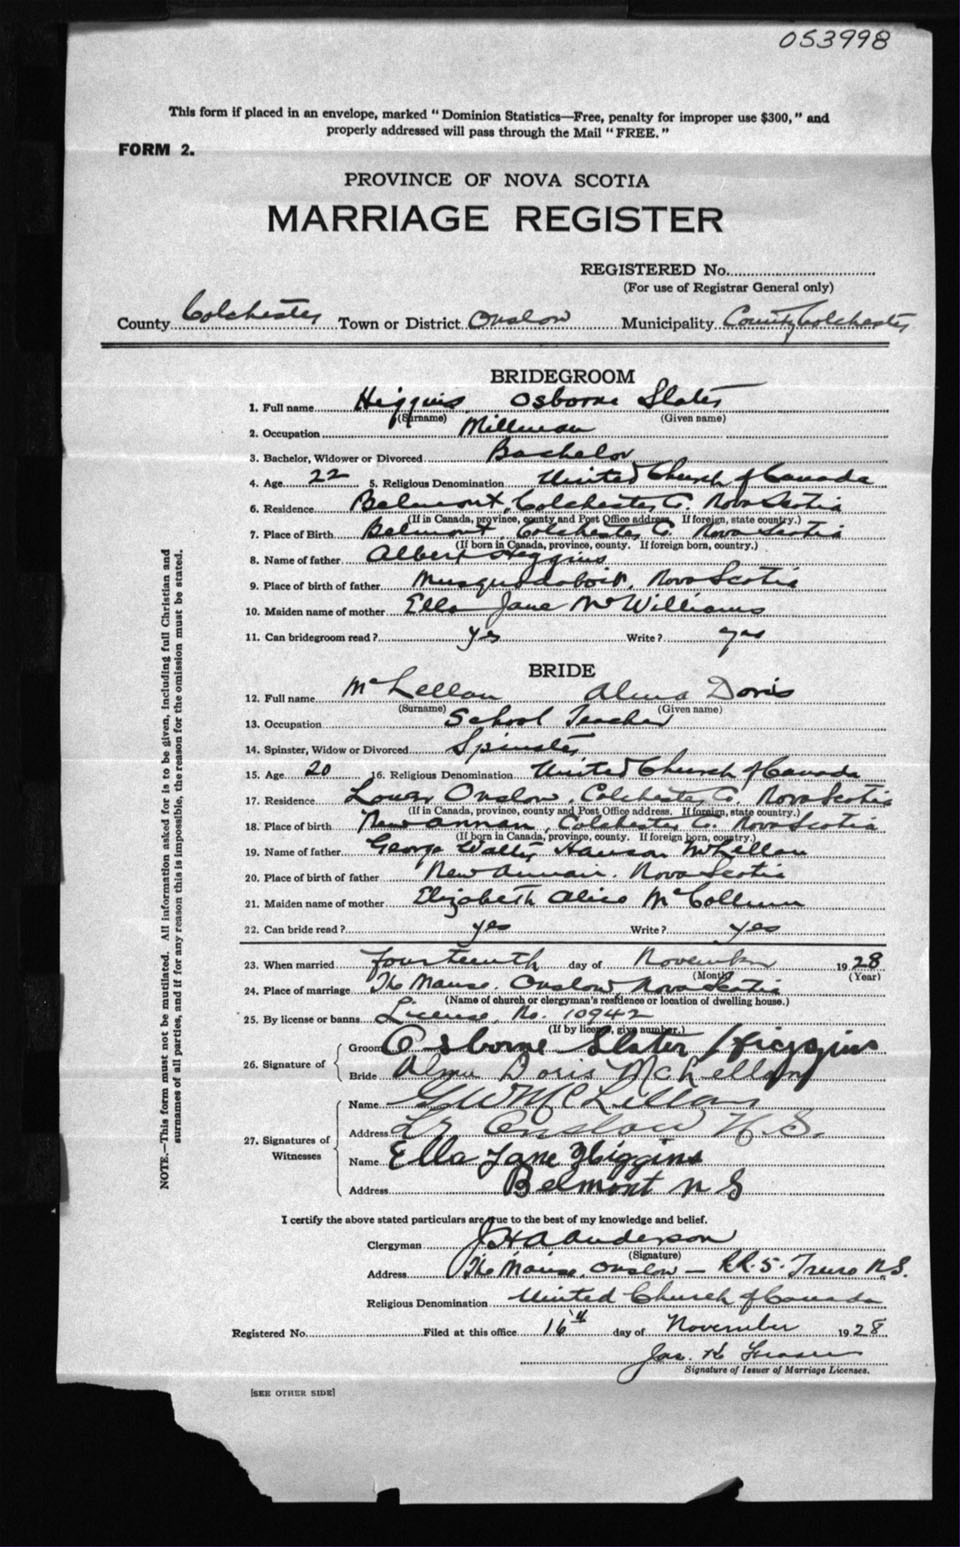 053998
This form if placed in an envelope, marked "Dominion Statistics—Free, penalty for improper use $300," and
properly addressed will pass through the Mail "FREE."
FORM 2.
PROVINCE OF NOVA SCOTIA
MARRIAGE REGISTER
REGISTERED No.
(For use of Registrar General only)
County Colchester Town or District Onslow Municipality County Colchester
BRIDEGROOM
1. Full name Higgins Osborne Slater
(Surname) (Given name)
2. Occupation Millman
3. Bachelor, Widower or Divorced Bachelor
4. Age 22 5. Religious Denomination United Church of Canada
6. Residence Belmont, Colchester C. Nova Scotia
(If in Canada, province, county and Post Office address. If foreign, state country.)
7. Place of Birth Belmont, Colchester C. Nova Scotia
(If born in Canada, province, county. If foreign born, country.)
8. Name of father Albert Higgins
9. Place of birth of father Musquodoboit, Nova Scotia
10. Maiden name of mother Ella Jane McWilliams
11. Can bridegroom read? yes Write? yes
BRIDE
12. Full name McLellan Alma Doris
(Surname) (Given name)
13. Occupation School Teacher
14. Spinster, Widow or Divorced Spinster
15. Age 20 16. Religious Denomination United Church of Canada
17. Residence Lower Onslow, Colchester C. Nova Scotia
(If in Canada, province, county and Post Office address. If foreign, state country.)
18. Place of birth New Annan, Colchester C. Nova Scotia
(If born in Canada, province, county. If foreign born, country.)
19. Name of father George Walter Hanson McLellan
20. Place of birth of father New Annan. Nova Scotia
21. Maiden name of mother Elizabeth Alice McCollum
22. Can bride read? yes Write? yes
23. When married fourteenth day of November 1928
(Month) (Year)
24. Place of marriage The Manse. Onslow, Nova Scotia
(Name of church or clergyman's residence or location of dwelling house.)
25. By license or banns License, No. 10942
(If by license, give number.)
26. Signature of Groom Osborne Slater Higgins
Bride Alma Doris McLellan
27. Signatures of Witnesses
Name G W McLellan
Address Lr Onslow N.S.
Name Ella Jane Higgins
Address Belmont N S
I certify the above stated particulars are true to the best of my knowledge and belief.
Clergyman J H A Anderson
(Signature)
Address The Manse, Onslow — R.R. 5. Truro N.S.
Religious Denomination United Church of Canada
Registered No. Filed at this office 16th day of November 1928
Jas. K Fraser
Signature of Issuer of Marriage Licenses.
[SEE OTHER SIDE]
NOTE.—This form must not be mutilated. All information asked for is to be given, including full Christian and
surnames of all parties, and if for any reason this is impossible, the reason for the omission must be stated.